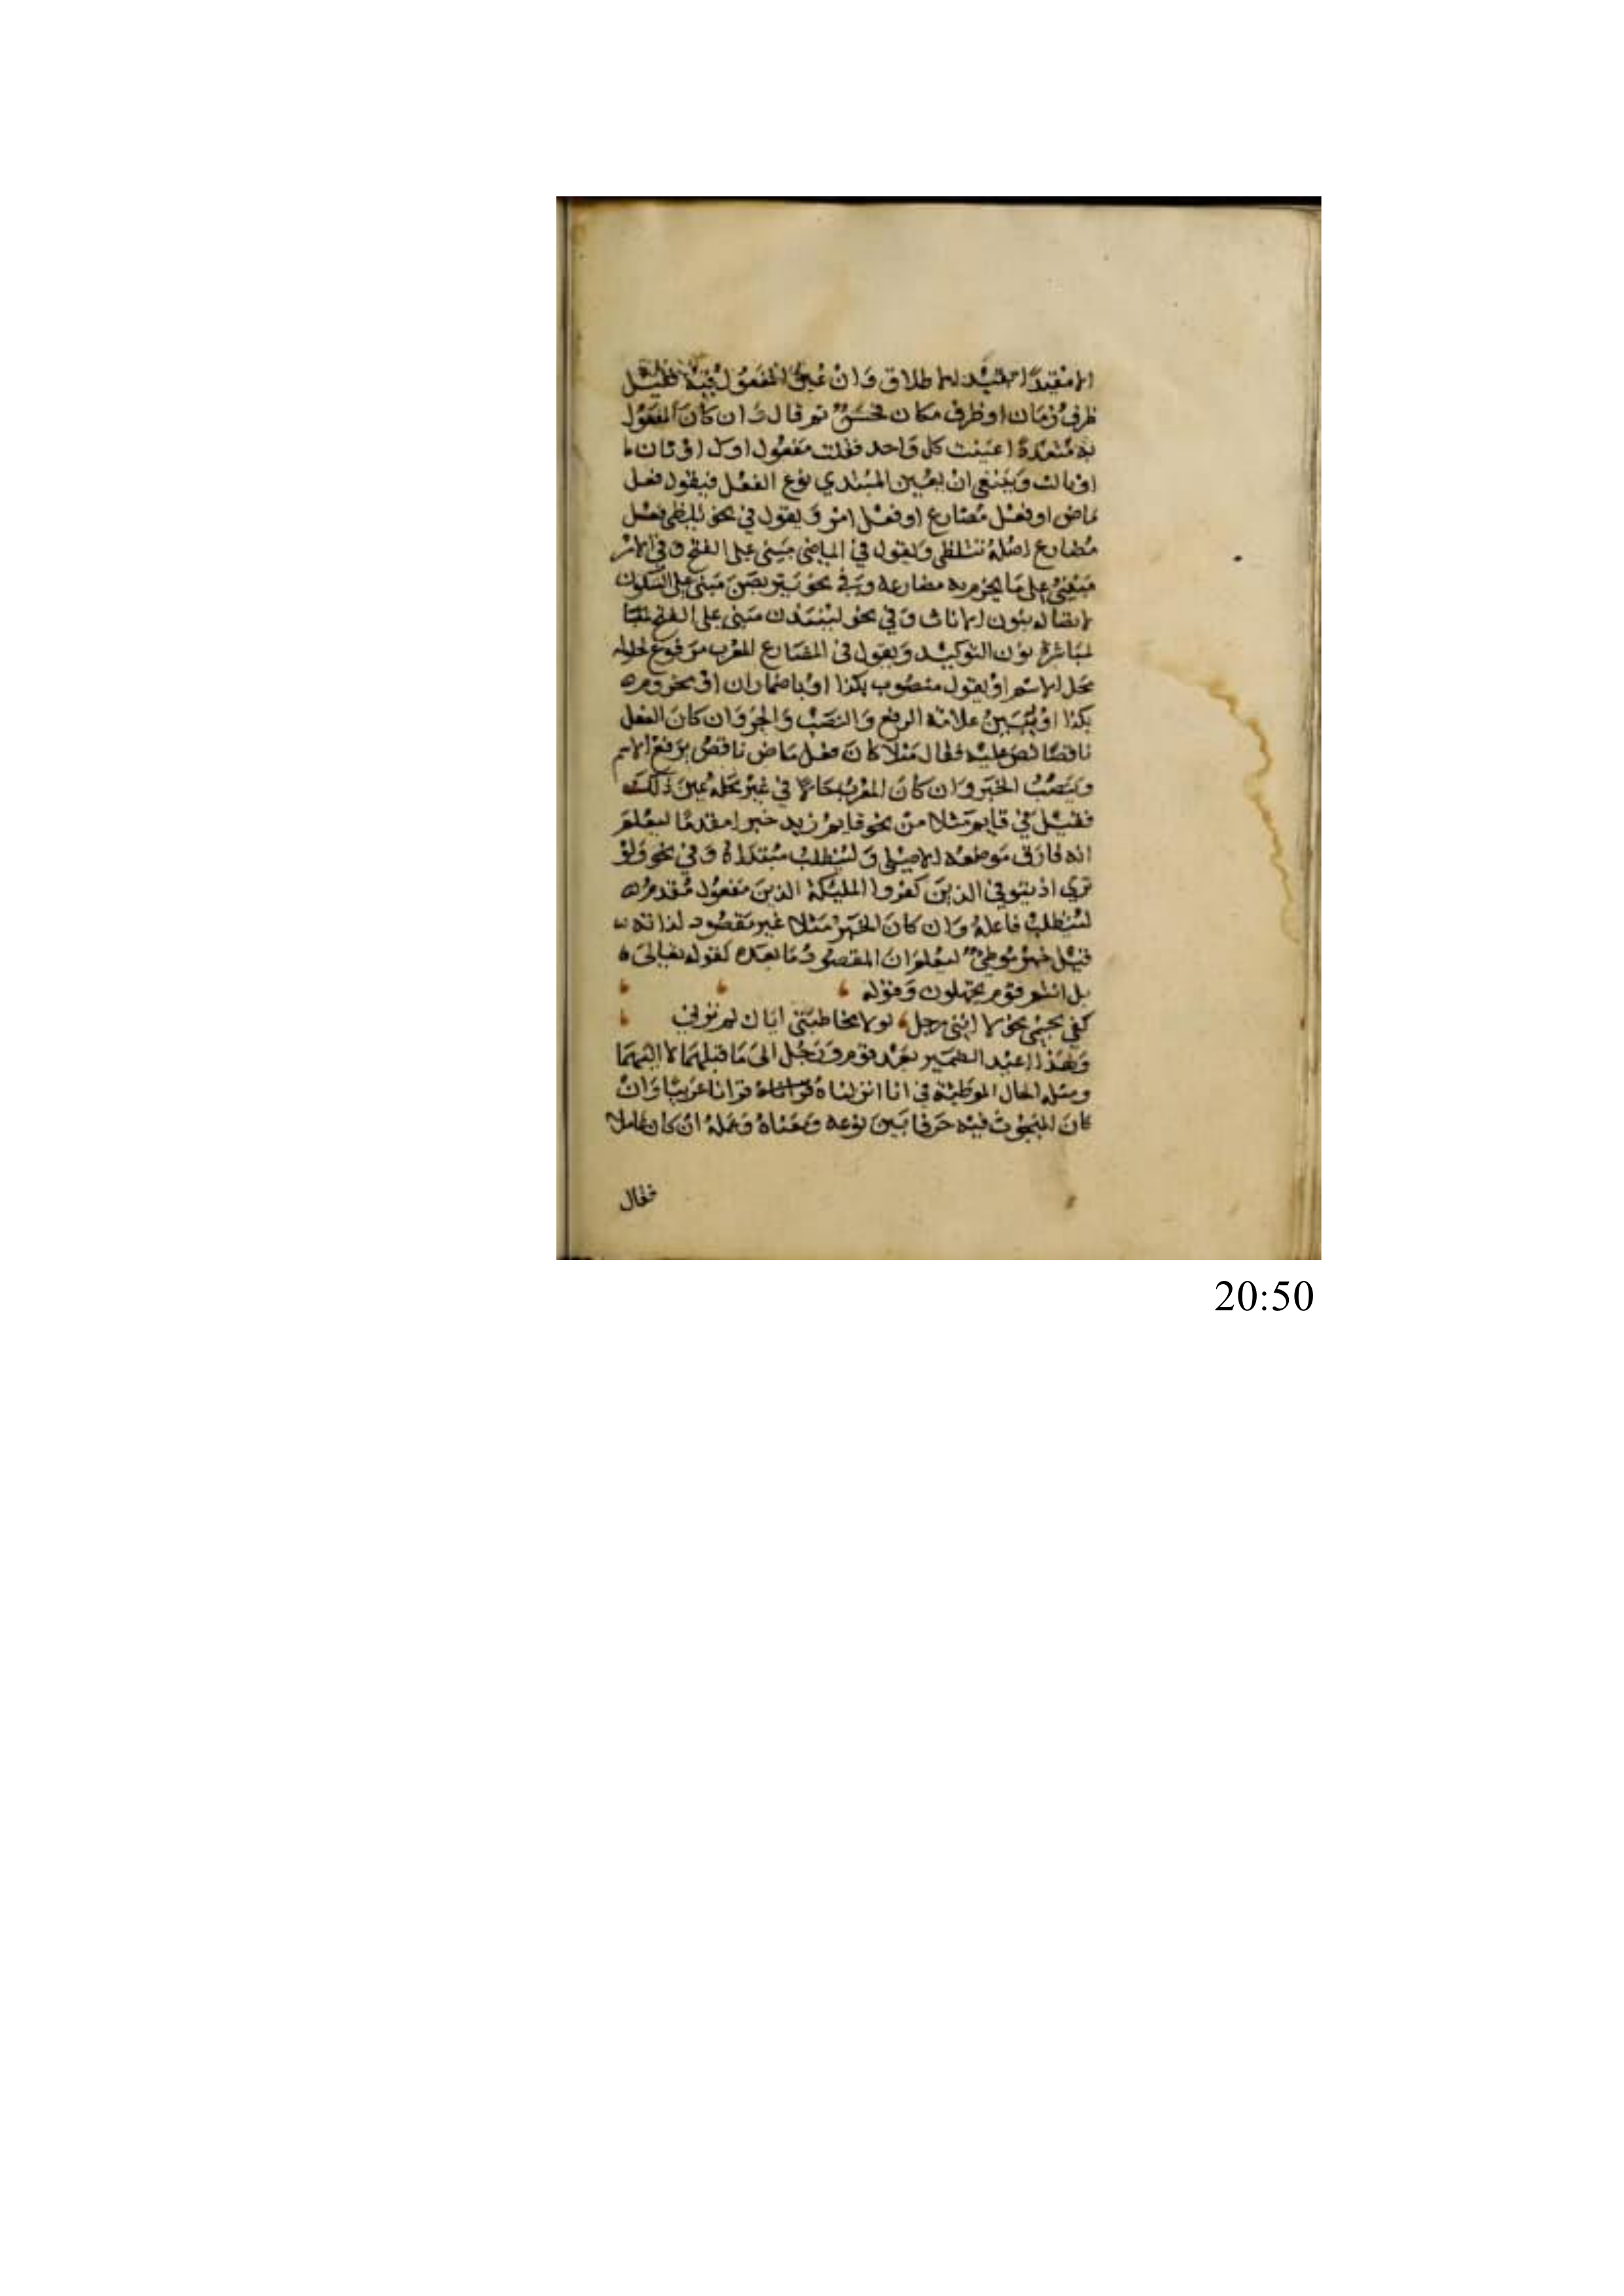 الا مقيدا بقيد الاطلاق وان عين المفعول فيه فقيل
ظرف زمان او ظرف مكان فحسن ثم قال وان كان المفعول
به متعددا عينت كل واحد فقلت مفعول اول او ثان
او ثالث وينبغي ان يعين المبتدي نوع الفعل فيقول فعل
ماض او فعل مضارع او فعل امر ويقول في نحو تلظى فعل
مضارع اصله تتلظى ويقول في الماضي مبني على الفتح وفي الامر
مبني على ما يجزم به مضارعه وفي نحو يتربصن مبني على السكون
لاتصاله بنون الاناث وفي نحو لينبذن مبني على الفتح
لمباشرة نون التوكيد ويقول في المضارع المعرب مرفوع لحلوله
محل الاسم او يقول منصوب بكذا او باضمار ان او مجزوم
بكذا او يبين علامة الرفع والنصب والجر وان كان الفعل
ناقصا نص عليه فقال مثلا كان فعل ماض ناقص يرفع الاسم
وينصب الخبر وان كان المعرب حالا في غير محله عين ذلك
فقيل في قايم مثلا من نحو قايم زيد خبر مقدما ليعلم
انه فارق موضعه الاصلي وليتطلب مبتداه وفي نحو ولو
تري اذ يتوفي الذين كفروا المليكة الذين مفعول مقدم
ليتطلب فاعله وان كان الخبر مثلا غير مقصود لذاته
قيل خبر موطئ ليعلم ان المقصود ما بعده كقوله تعالى
بل انتم قوم تجهلون وقوله
كفي بجسمي نحولا انني رجل لولا مخاطبتي اياك لم ترني
ولهذا اعيد الضمير بعد قوم ورجل الى ما قبلهما لا اليهما
ومثله الحال الموطئة في انا انزلناه قرانا عربيا وان
كان المبحوث فيه حرفا بين نوعه ومعناه وعمله ان كان عاملا
فقال
20:50